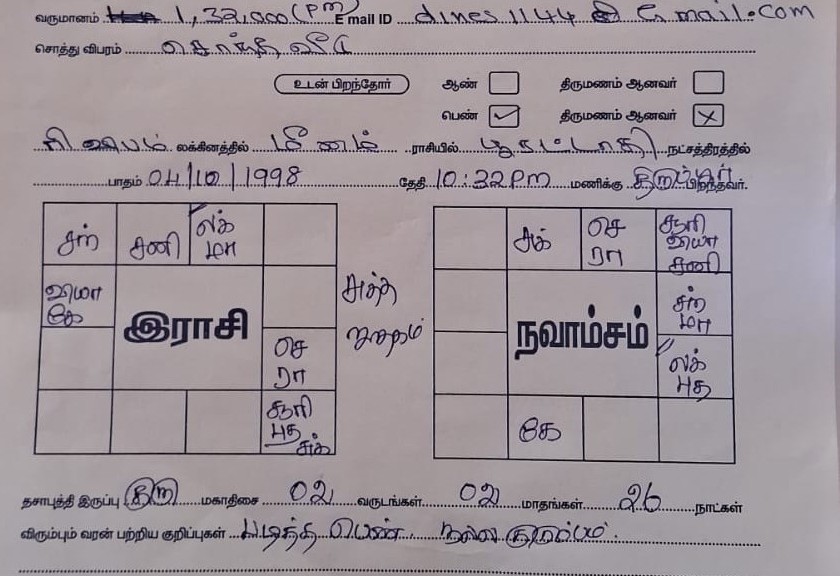 வருமானம் 1,32,000 (PM) E mail ID dines1144 @ Gmail.com
சொத்து விபரம் சொந்த வீடு
உடன் பிறந்தோர் ஆண் திருமணம் ஆனவர்
பெண் ✓ திருமணம் ஆனவர் X
ரிஷபம் லக்கினத்தில் மீனம் ராசியில் பூரட்டாதி நட்சத்திரத்தில்
பாதம் 04/10/1998 தேதி 10:32 PM மணிக்கு திருப்பூர் பிறந்தவர்.
சந் சனி லக் மா
வியா கே
செ ரா
சூரி புத சுக்
இராசி
சுத்த ஜாதகம்
சுக் செ ரா சூரி வியா சனி
சந் மா
லக் புத
கே
நவாம்சம்
தசாபுத்தி இருப்பு குரு மகாதிசை 02 வருடங்கள் 02 மாதங்கள் 26 நாட்கள்
விரும்பும் வரன் பற்றிய குறிப்புகள் படித்த பெண். நல்ல குடும்பம்.